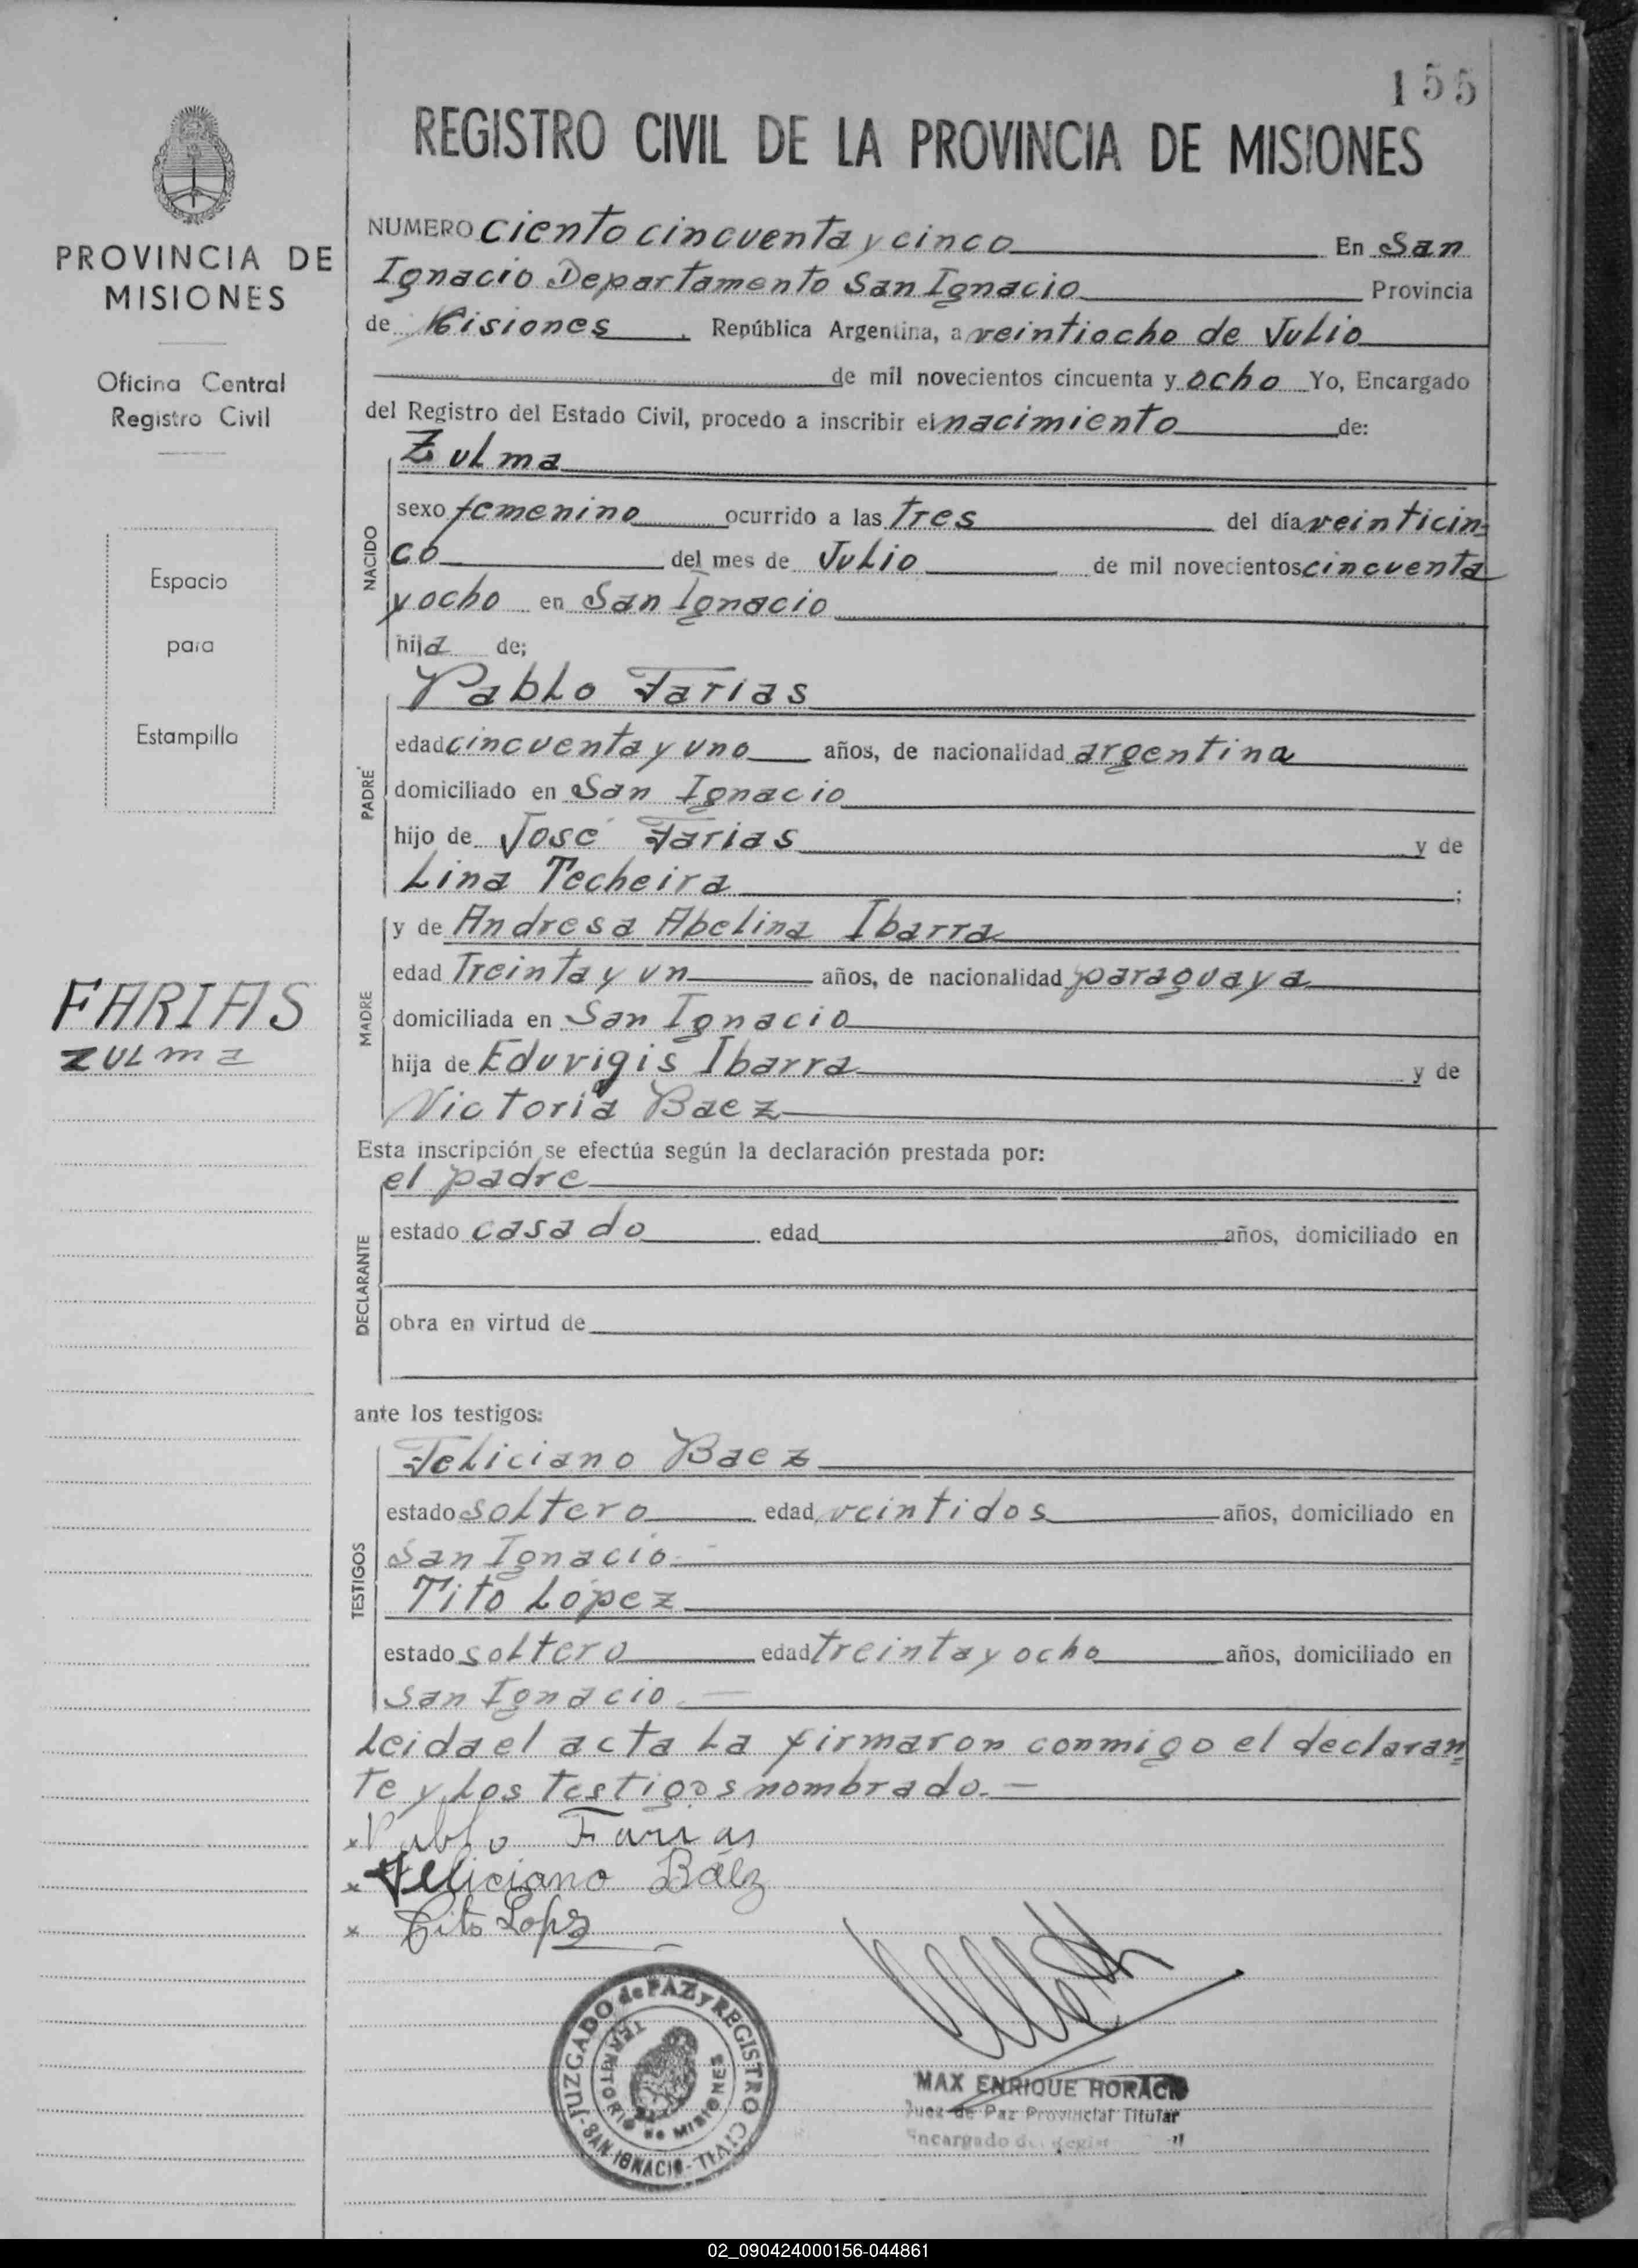 155
REGISTRO CIVIL DE LA PROVINCIA DE MISIONES
PROVINCIA DE
MISIONES
Oficina Central
Registro Civil
Espacio
para
Estampilla
FARIAS
ZULMA
NUMERO ciento cincuenta y cinco En San
Ignacio Departamento San Ignacio Provincia
de Misiones. República Argentina, a veintiocho de Julio
de mil novecientos cincuenta y ocho Yo, Encargado
del Registro del Estado Civil, procedo a inscribir el nacimiento de:
Zulma
NACIDO
sexo femenino ocurrido a las tres del día veinticin=
co del mes de Julio de mil novecientos cincuenta
y ocho en San Ignacio
hija de;
Pablo Farias
PADRE
edad cincuenta y uno años, de nacionalidad argentina
domiciliado en San Ignacio
hijo de José Farias y de
Lina Techeira ;
y de Andresa Abelina Ibarra
MADRE
edad Treinta y un años, de nacionalidad paraguaya
domiciliada en San Ignacio
hija de Eduvigis Ibarra y de
Victoria Baez
Esta inscripción se efectúa según la declaración prestada por:
el padre
DECLARANTE
estado casado edad años, domiciliado en
obra en virtud de
ante los testigos:
Feliciano Baez
TESTIGOS
estado soltero edad veintidos años, domiciliado en
San Ignacio
Tito López
estado soltero edad treinta y ocho años, domiciliado en
San Ignacio.—
Leida el acta la firmaron conmigo el declaran=
te y los testigos nombrado.—
x Pablo Farias
x Feliciano Báez
x Tito Lopz
JUZGADO de PAZ y REGISTRO CIVIL
TERRITORIO de MISIONES
-SAN IGNACIO-
MAX ENRIQUE HORACIO
Juez de Paz Provincial Titular
Encargado del Regist
02_090424000156-044861